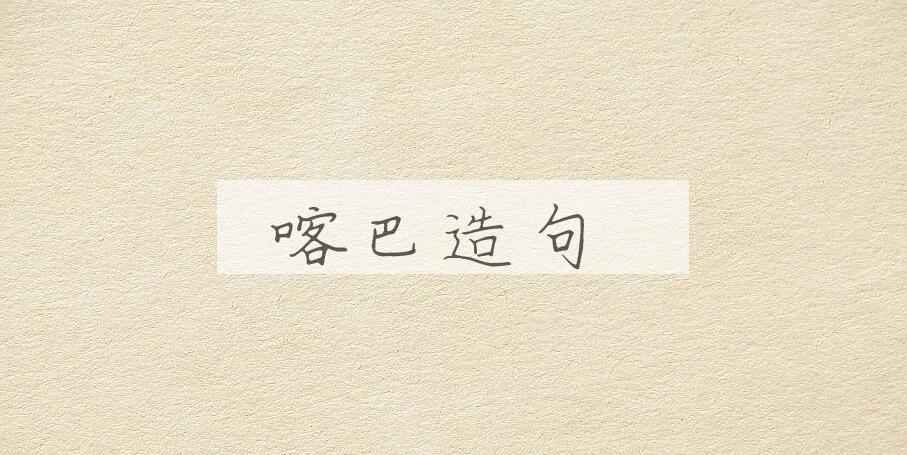 喀巴造句